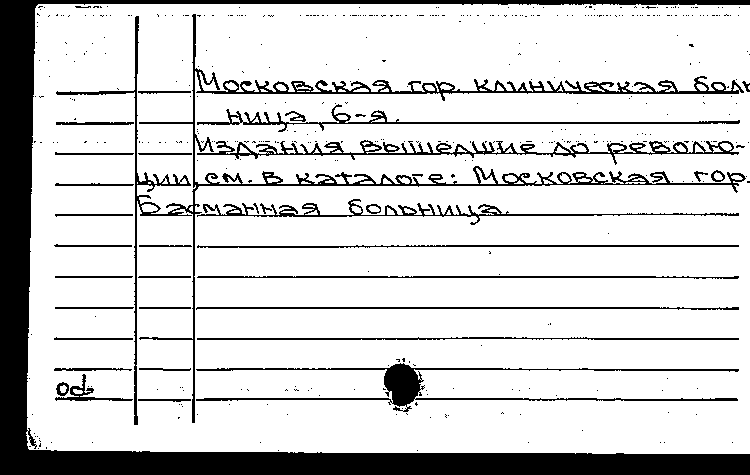 Московская гор. клиническая боль
ница, 6-я.
Издания, вышедшие до револю-
ции, см. в каталоге: Московская гор.
Басманная больница.